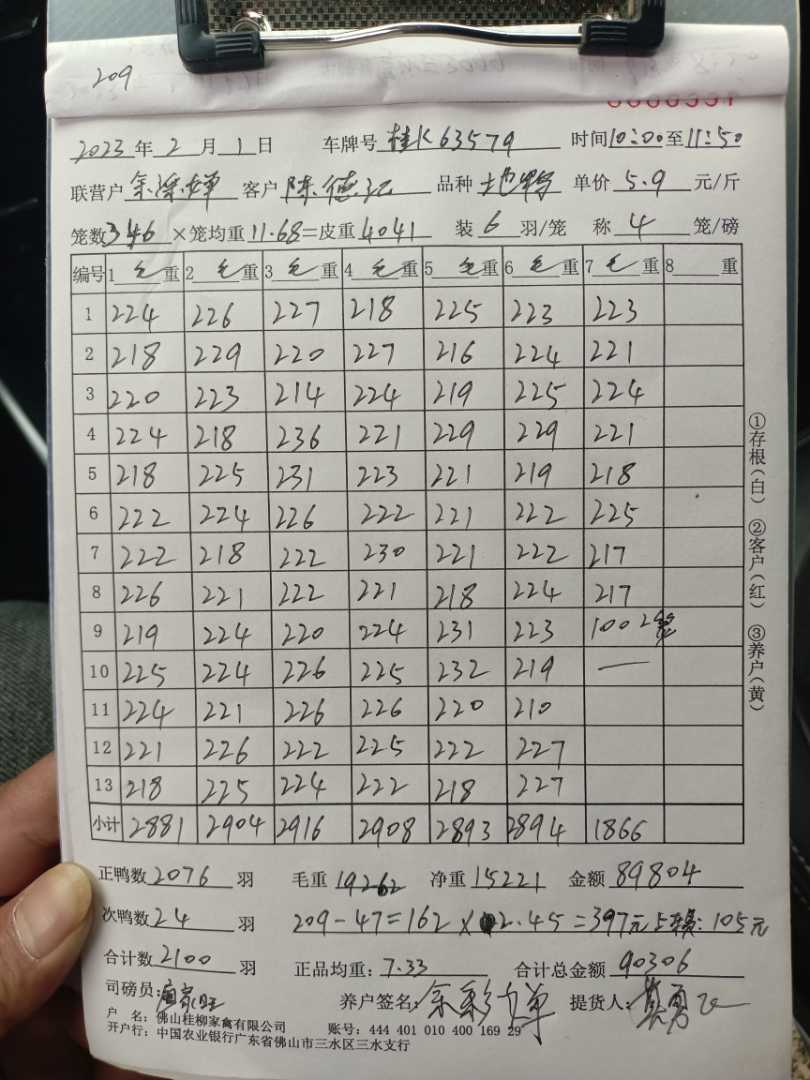 209
2023年2月1日 车牌号桂K63579 时间10:00至11:50
联营户余 客户陈德记 品种 单价5.9元/斤
笼数346×笼均重11.68=皮重4041 装6羽/笼 称4笼/磅
编号 1毛重 2毛重 3毛重 4毛重 5毛重 6毛重 7毛重 8重
1 224 226 227 218 225 223 223
2 218 229 220 227 216 224 221
3 220 223 214 224 219 225 224
4 224 218 236 221 229 229 221
5 218 225 231 223 221 219 218
6 222 224 226 222 221 222 225
7 222 218 222 230 221 222 217
8 226 221 222 221 218 224 217
9 219 224 220 224 231 223 100 2笼
10 225 224 226 225 232 219 —
11 224 221 226 226 220 210
12 221 226 222 225 222 227
13 218 225 224 222 218 227
小计 2881 2904 2916 2908 2893 2894 1866
①存根(白) ②客户(红) ③养户(黄)
正鸭数2076羽 毛重19262 净重15221 金额89804
次鸭数24羽 209-47=162×2.45=397元 上车费:105元
合计数2100羽 正品均重:7.33 合计总金额90306
司磅员: 养户签名:余彩婵 提货人:
户 名:佛山桂柳家禽有限公司 账号:444 401 010 400 169 29
开户行:中国农业银行广东省佛山市三水区三水支行